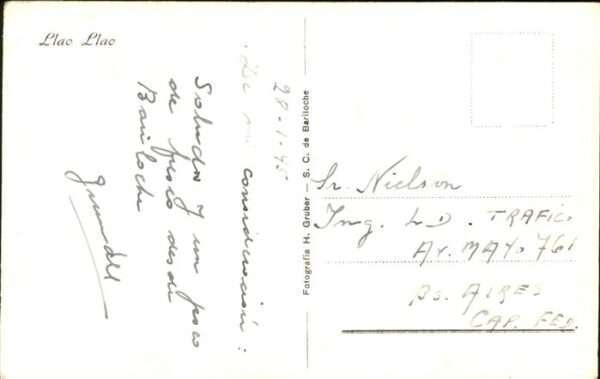 Llao Llao
28-1-45
De mi consideración:
Saludos y un poco
de fresco desde
Bariloche
Fotografía H. Gruber — S. C. de Bariloche
Sr. Nielson
Ing. L D. TRAFIC.
AV. MAYO 761
BS. AIRES
CAP. FED.